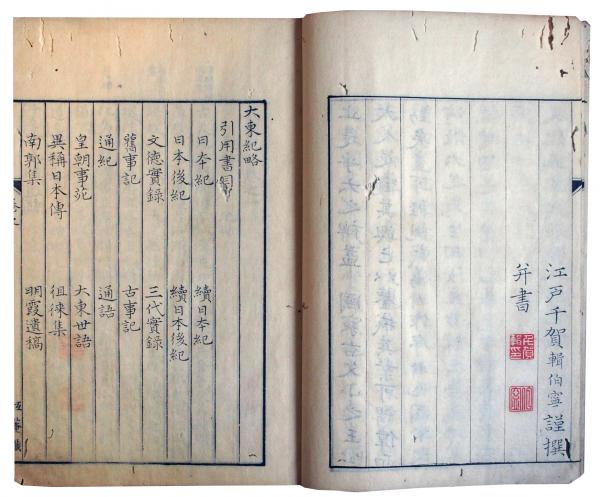 江戸千賀輯伯寧謹撰
幷書
大東紀略
引用書目
日本紀 續日本紀
日本後紀 續日本後紀
文德實錄 三代實錄
舊事記 古事記
通紀 通語
皇朝事苑 大東世語
異稱日本傳 徂徠集
南郭集 明霞遺稿